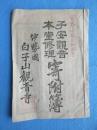 子安觀音
本堂修理寄附簿
伊勢國
白子山觀音寺